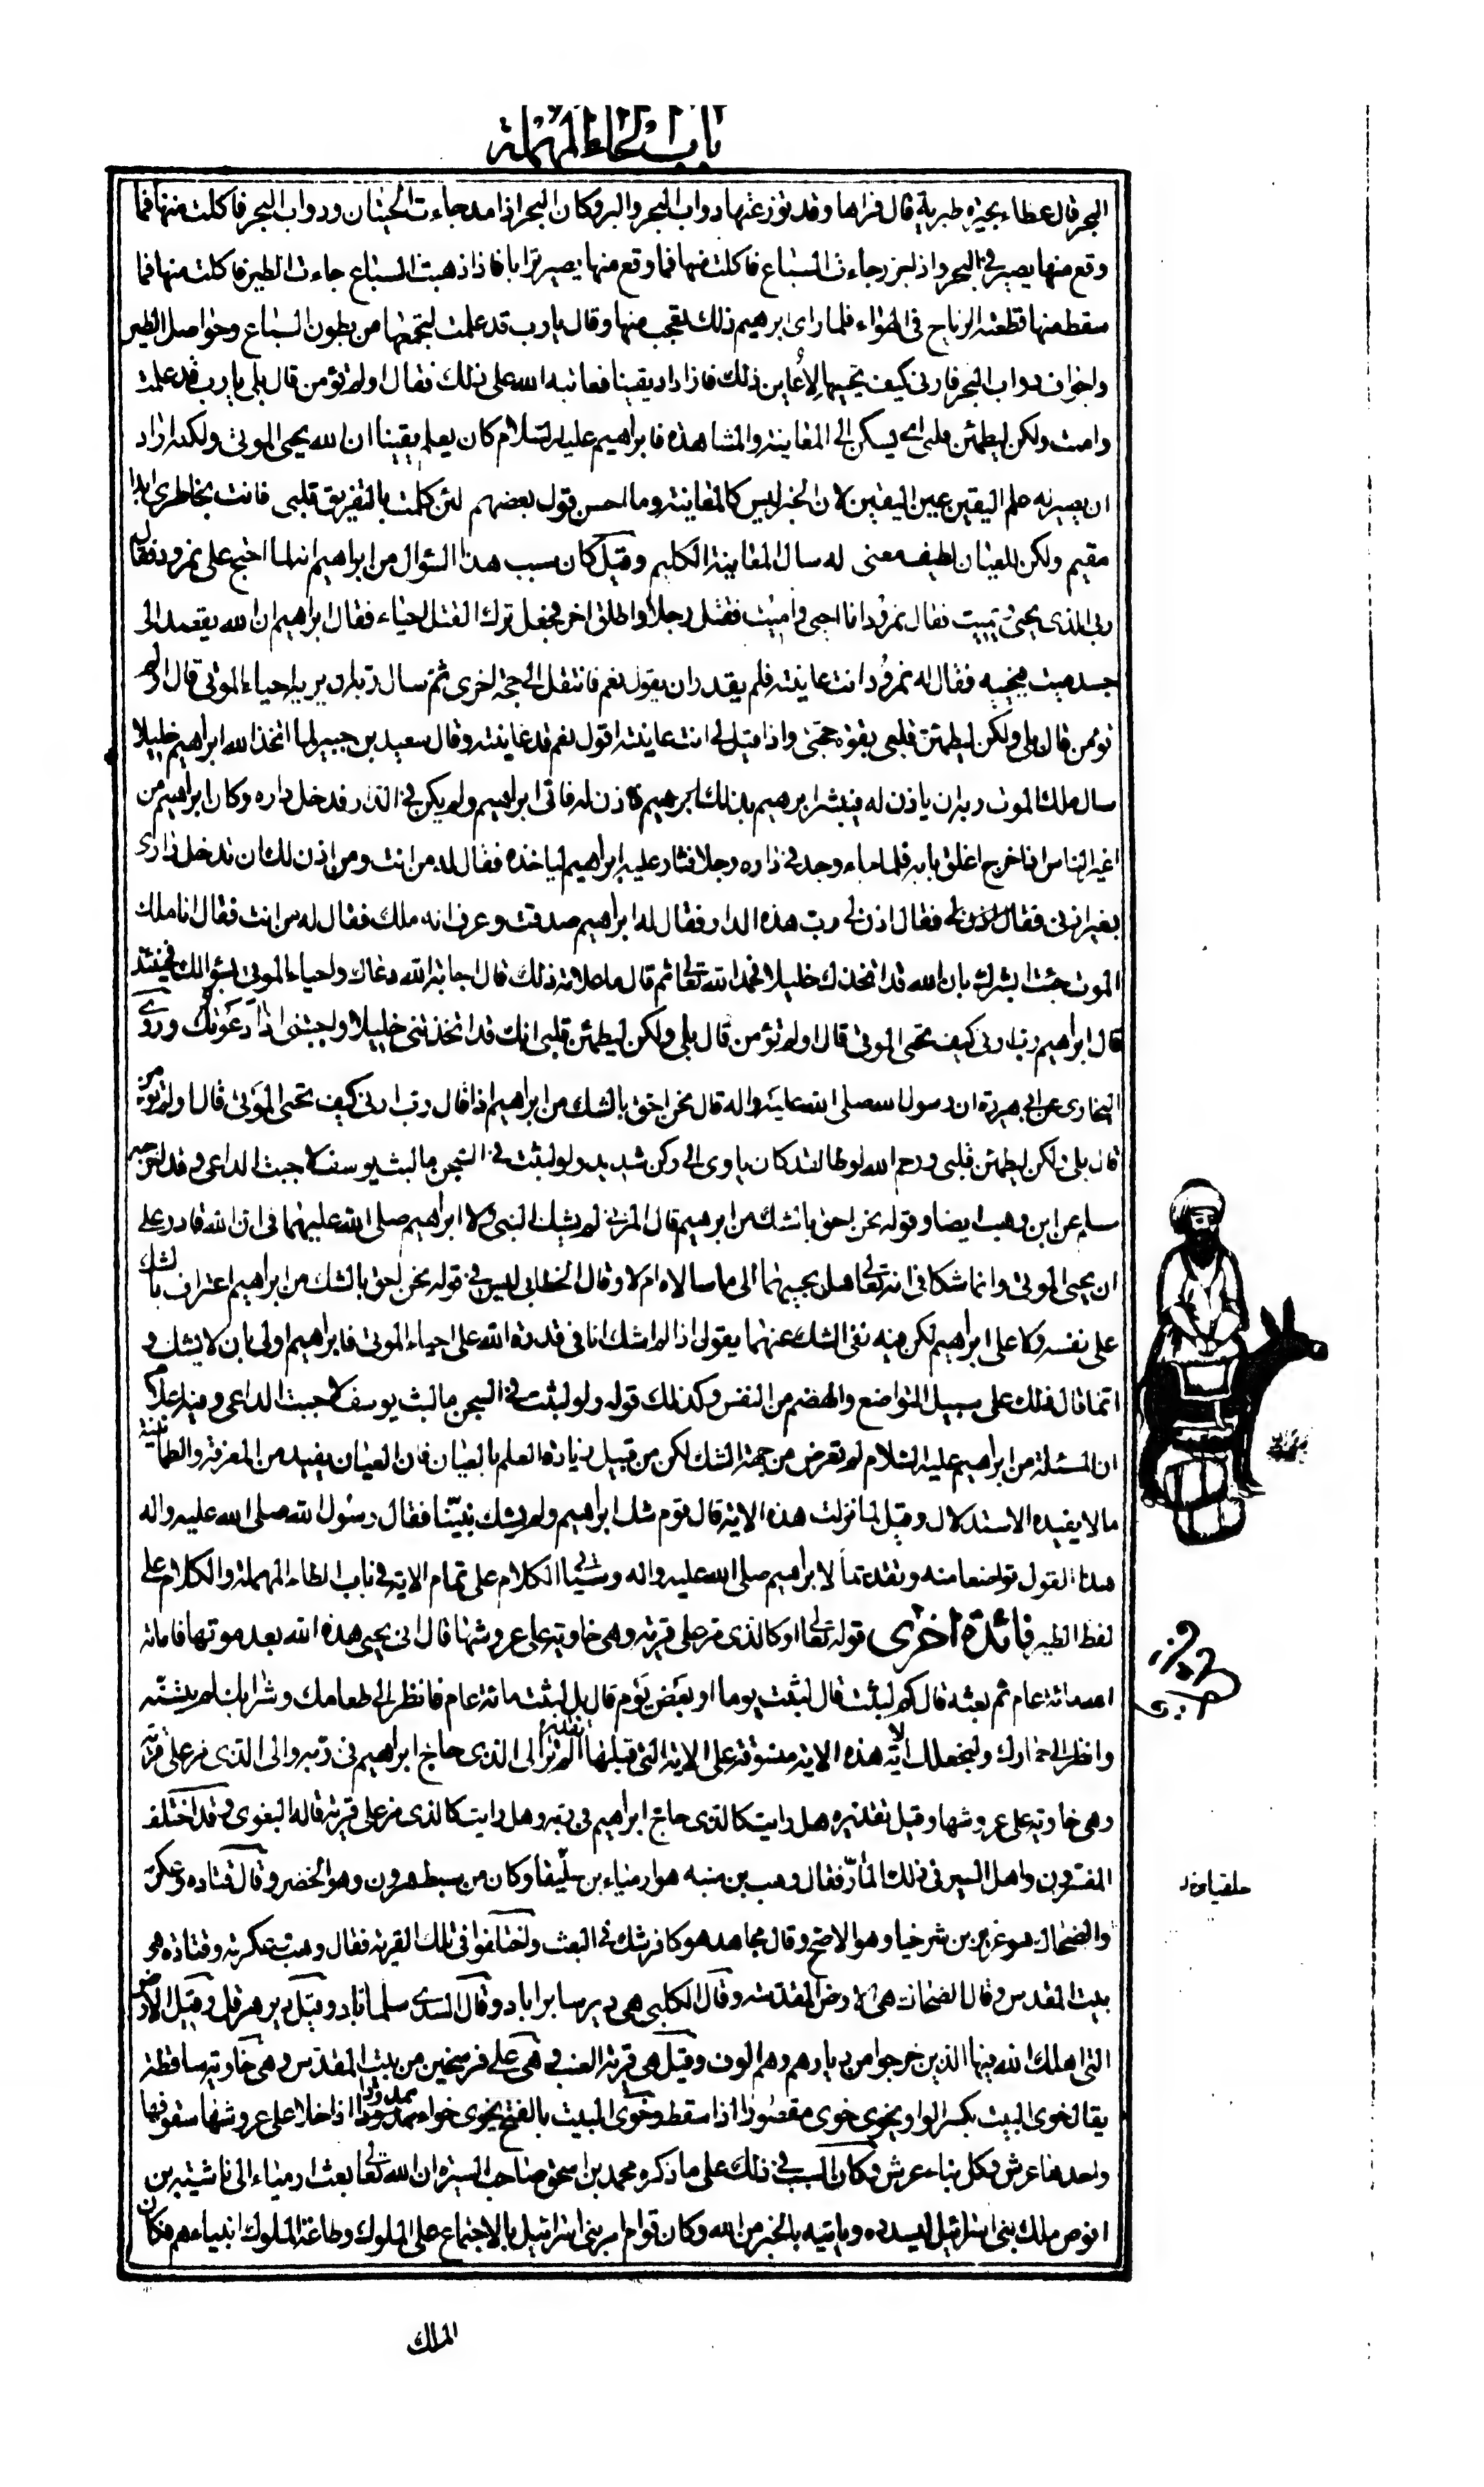 باب الحاء المهملة
البحر قال عطاء بحيرة طبرية قال فراها وقد توزعتها دواب البحر والبر وكان البحر اذا مد جاءت الحيتان ودواب البحر فاكلت منها فما
وقع منها يصير في البحر واذا جزر جاءت السباع فاكلت منها فما وقع منها يصير ترابا فاذا ذهبت السباع جاءت الطير فاكلت منها فما
سقط منها قطعته الرياح في الهواء فلما راى ابرهيم ذلك تعجب منها وقال يا رب قد علمت لتجمعها من بطون السباع وحواصل الطير
واجواف دواب البحر فارني كيف تحييها لأعاين ذلك فازداد يقينا فعاتبه الله على ذلك فقال اولم تؤمن قال بلى يا رب قد علمت
وامنت ولكن ليطمئن قلبي اي يسكن الى المعاينة والمشاهدة فابراهيم عليه السلام كان يعلم يقينا ان الله يحيى الموتى ولكنه اراد
ان يصير له علم اليقين عين اليقين لان الخبر ليس كالمعاينة وما احسن قول بعضهم لئن كلمت بالتفريق قلبي فانت بخاطري ابدا
مقيم ولكن للعيان لطيف معنى له سال المعاينة الكليم وقيل كان سبب هذا السؤال من ابراهيم انه لما احتج على نمرود فقال
ربي الذي يحيي ويميت فقال نمرود انا احيي واميت فقتل رجلا واطلق اخر فجعل ترك القتل احياء فقال ابراهيم ان الله يقصد الى
جسد ميت فيحييه فقال له نمرود انت عاينته فلم يقدر ان يقول نعم فانتقل الى حجة اخرى ثم سال ربه ان يريه احياء الموتى قال اولم
تؤمن قال بلى ولكن ليطمئن قلبي بقوة حجتي واذا قيل لي انت عاينته اقول نعم قد عاينته وقال سعيد بن جبير لما اتخذ الله ابراهيم خليلا
سال ملك الموت ربه ان ياذن له فيبشر ابرهيم بذلك فاذن له فاتى ابراهيم ولم يكن في الدار فدخل داره وكان ابراهيم من
اغير الناس اذا خرج اغلق بابه فلما جاء وجد في داره رجلا فثار عليه ابراهيم لياخذه فقال له من انت ومن اذن لك ان تدخل داري
بغير اذني فقال اذن لي رب هذه الدار فقال له ابراهيم صدقت وعرف انه ملك فقال له من انت فقال انا ملك
الموت جئت ابشرك بان الله قد اتخذك خليلا فحمد الله تعالى ثم قال ما علامة ذلك قال اجابة الله دعاك واحياء الموتى بسؤالك فحينئذ
قال ابراهيم رب ارني كيف تحيى الموتى قال اولم تؤمن قال بلى ولكن ليطمئن قلبي انك قد اتخذتني خليلا وتجيبني اذا دعوتك وروى
البخارى عن ابي هريرة ان رسول الله صلى الله عليه واله قال نحن احق بالشك من ابراهيم اذ قال رب ارني كيف تحيى الموتى قال اولم تؤمن
قال بلى ولكن ليطمئن قلبي ورحم الله لوطا لقد كان ياوى الى ركن شديد ولو لبثت في السجن ما لبث يوسف لاجبت الداعي وقد اخرجه
مسلم عن ابن وهب ايضا وقوله نحن احق بالشك من ابرهيم قال المزني لم يشك النبي ولا ابراهيم صلى الله عليهما في ان الله قادر على
ان يحيى الموتى وانما شكا في انه تعالى هل يجيبهما الى ما سالاه ام لا وقال الخطابي ليس في قوله نحن احق بالشك من ابراهيم اعتراف بالشك
على نفسه ولا على ابراهيم لكن فيه نفى الشك عنهما يقول اذا لم اشك انا في قدرة الله على احياء الموتى فابراهيم اولى بان لا يشك و
انما قال ذلك على سبيل التواضع والهضم من النفس وكذلك قوله ولو لبثت في السجن ما لبث يوسف لاجبت الداعي وفيه اعلام
ان المسئلة من ابراهيم عليه السلام لم تعرض من جهة الشك لكن من قبيل زيادة العلم بالعيان فان العيان يفيد من المعرفة والطمانينة
ما لا يفيده الاستدلال وقيل لما نزلت هذه الاية قال قوم شك ابراهيم ولم يشك نبينا فقال رسول الله صلى الله عليه واله
هذا القول تواضعا منه وتقديما لابراهيم صلى الله عليه واله وسياتي الكلام على تمام الاية في باب الطاء المهملة والكلام على
لفظ الطير فائدة اخرى قوله تعالى او كالذى مر على قرية وهى خاوية على عروشها قال انى يحيى هذه الله بعد موتها فاماته
الله مائة عام ثم بعثه قال كم لبثت قال لبثت يوما او بعض يوم قال بل لبثت مائة عام فانظر الى طعامك وشرابك لم يتسنه
وانظر الى حمارك ولنجعلك اية الاية هذه الاية منسوقة على الاية التى قبلها تقديره الم تر الى الذى حاج ابراهيم في ربه والى الذى مر على قرية
وهى خاوية على عروشها وقيل تقديره هل رايت كالذى حاج ابراهيم في ربه وهل رايت كالذى مر على قرية قاله البغوى وقد اختلف
المفسرون واهل السير في ذلك المار فقال وهب بن منبه هو ارمياء بن حلقيا وكان من سبط هرون وهو الخضر وقال قتادة وعكرمة
والضحاك هو عزير بن شرخيا وهو الاصح وقال مجاهد هو كافر شك في البعث واختلفوا في تلك القرية فقال وهب وعكرمة وقتادة هى
بيت المقدس وقال الضحاك هى الارض المقدسة وقال الكلبي هى دير سابراباد وقال السدي سلماباد وقيل دير هرقل وقيل الارض
التى اهلك الله فيها الذين خرجوا من ديارهم وهم الوف وقيل هى قرية العنب وهى على فرسخين من بيت المقدس وهى خاوية ساقطة
يقال خوى البيت بكسر الواو يخوى خوى مقصورا اذا سقط وخوى البيت بالفتح يخوى خواء ممدودا اذا خلا على عروشها سقوفها
واحدها عرش وكل بناء عرش وكان السبب في ذلك على ما ذكره محمد بن اسحق صاحب السيرة ان الله تعالى بعث ارمياء الى ناشية بن
انوص ملك بني اسرائيل ليسدده وياتيه بالخبر من الله وكان قوام امر بني اسرائيل بالاجتماع على الملوك وطاعة الملوك انبياءهم فكان
حلقيا
الملك